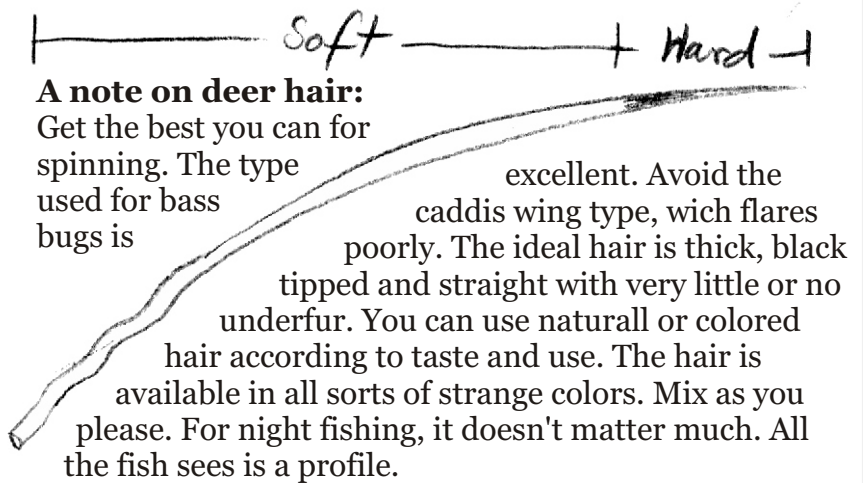 Soft Hard
A note on deer hair:
Get the best you can for
spinning. The type
used for bass
bugs is
excellent. Avoid the
caddis wing type, wich flares
poorly. The ideal hair is thick, black
tipped and straight with very little or no
underfur. You can use naturall or colored
hair according to taste and use. The hair is
available in all sorts of strange colors. Mix as you
please. For night fishing, it doesn't matter much. All
the fish sees is a profile.